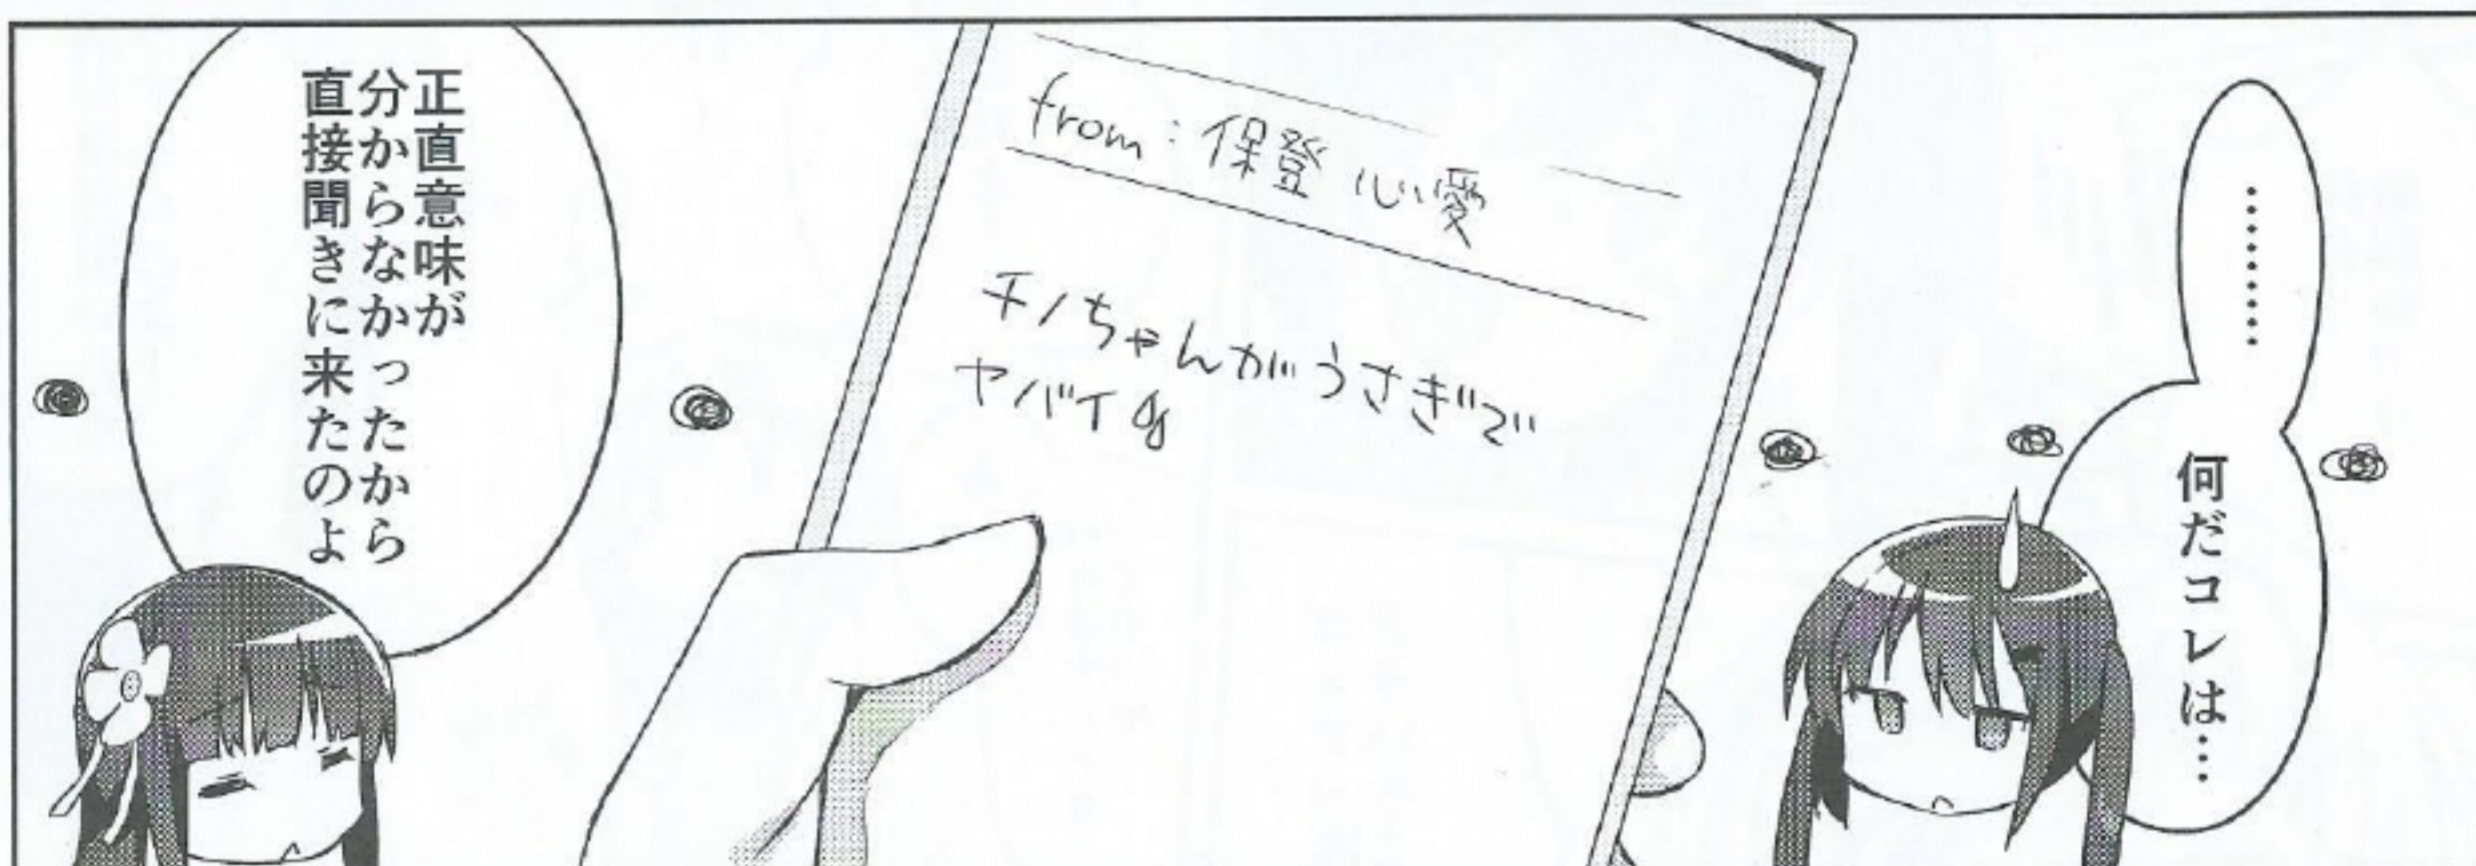 ………
何だコレは…
from：保登 心愛
チノちゃんがうさぎで
ヤバイg
正直意味が
分からなかったから
直接聞きに来たのよ